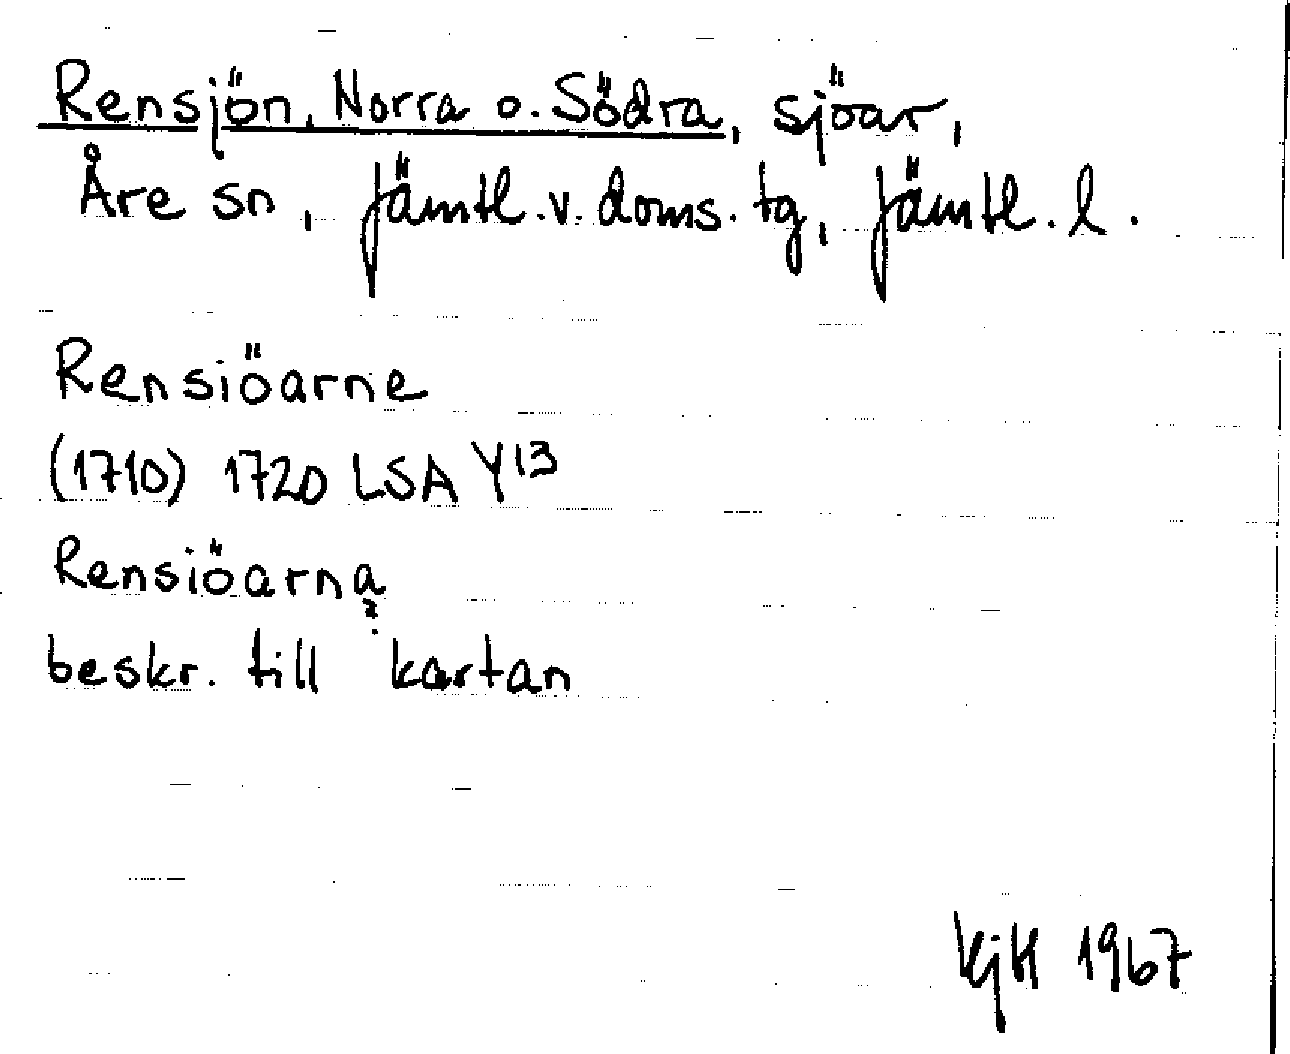 Rensjön, Norra o. Södra, sjöar,
Åre sn, Jämtl. v. doms. tg, Jämtl. l.
Rensiöarne
(1710) 1720 LSA Y13
Rensiöarna
?
beskr. till kartan
KjH 1967